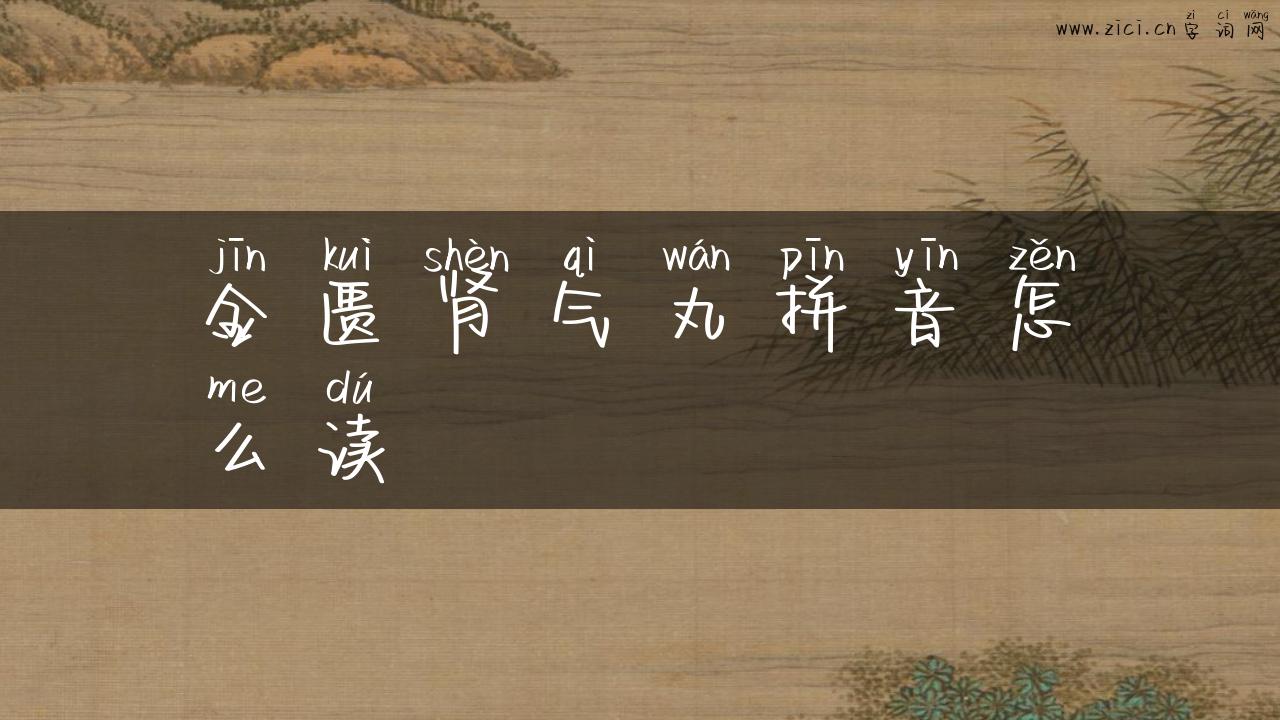 zì cí wǎng
www.zici.cn 字词网
jīn kuì shèn qì wán pīn yīn zěn
金匮肾气丸拼音怎
me dú
么读